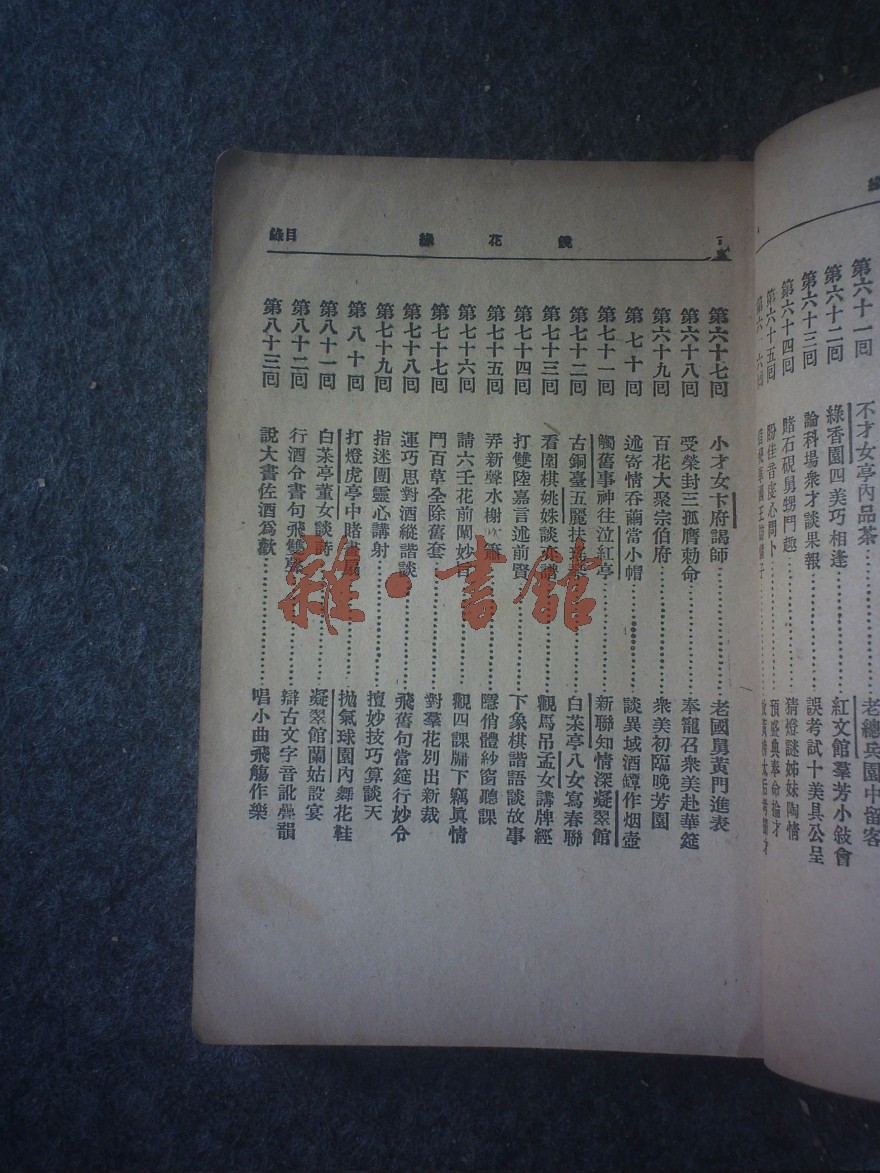 第六十一回 不才女亭內品茶 老總兵園中留客
第六十二回 綠香園四美巧相逢 紅文館羣芳小敍會
第六十三回 論科場衆才談果報 誤考試十美具公呈
第六十四回 賭石硯舅甥鬥趣 猜燈謎姊妹陶情
第六十五回 盼佳音虔心問卜 預盛典奉命掄才
鏡花緣
目錄
第六十七回 小才女卞府謁師 老國舅黃門進表
第六十八回 受榮封三孤膺勅命 奉寵召衆美赴華筵
第六十九回 百花大聚宗伯府 衆美初臨晚芳園
第七十回 述寄情吞繭當小帽 談異域酒罈作烟壺
第七十一回 觸舊事神往泣紅亭 新聯知情深凝翠館
第七十二回 古銅臺五麗扶 白茶亭八女寫春聯
第七十三回 看圍棋姚姝談弈譜 觀馬吊孟女講牌經
第七十四回 打雙陸嘉言述前賢 下象棋諧語談故事
第七十五回 弄新聲水榭 簫 隱俏體紗窗聽課
第七十六回 請六壬花前闡妙旨 觀四課牖下竊真情
第七十七回 鬥百草全除舊套 對羣花別出新裁
第七十八回 運巧思對酒縱諧談 飛舊句當筵行妙令
第七十九回 指迷團靈心講射 擅妙技巧算談天
第八十回 打燈虎亭中賭畫扇 拋氣球園內舞花鞋
第八十一回 白茶亭董女談詩 凝翠館蘭姑設宴
第八十二回 行酒令書句飛雙聲 辯古文字音訛疊韻
第八十三回 說大書佐酒爲歡 唱小曲飛觴作樂
雜·書館